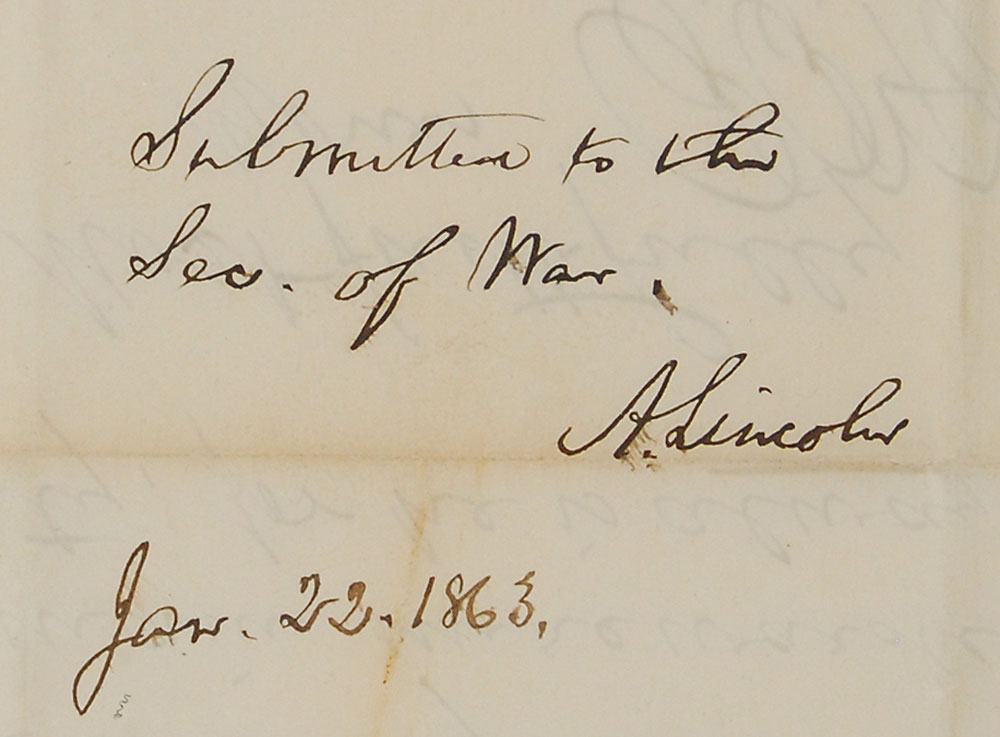 Submitted to the
Sec. of War.
A. Lincoln
Jan. 22. 1863.